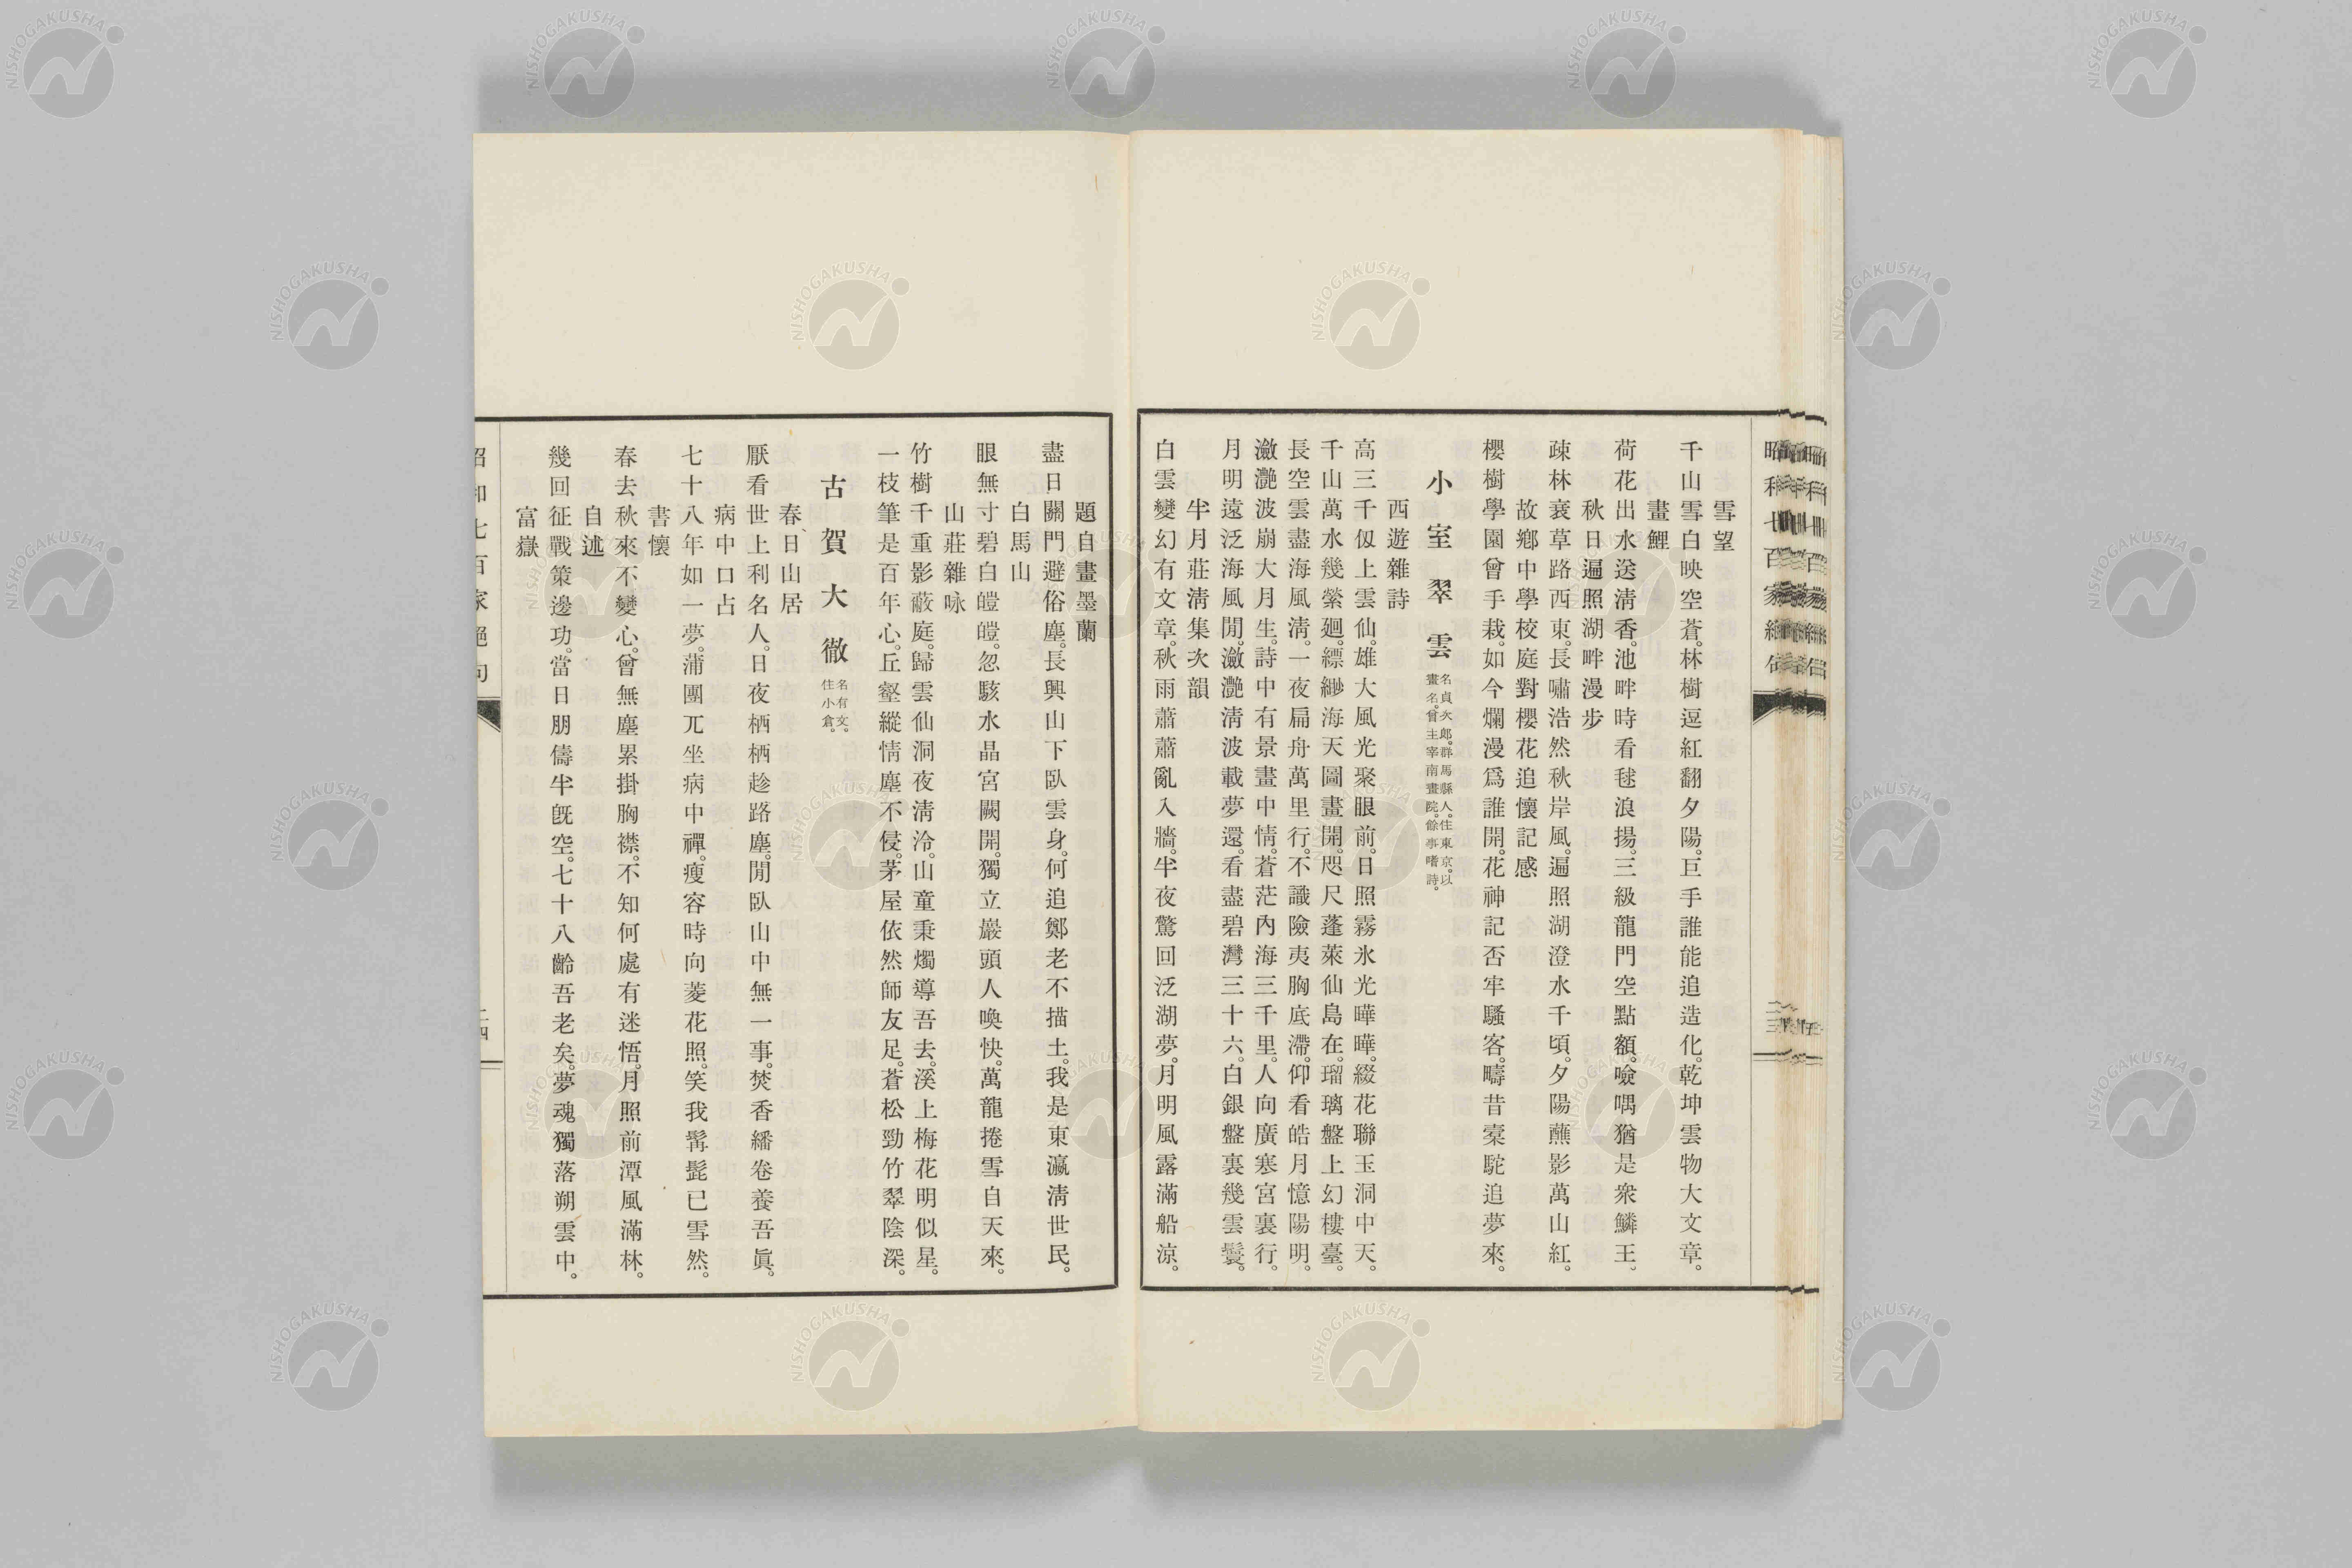 雪望
千山雪白映空蒼。林樹逗紅翻夕陽。巨手誰能追造化。乾坤雲物大文章。
畫鯉
荷花出水送淸香。池畔時看毬浪揚。三級龍門空點額。噞喁猶是衆鱗王。
秋日遍照湖畔漫步
疎林衰草路西東。長嘯浩然秋岸風。遍照湖澄水千頃。夕陽蘸影萬山紅。
故鄕中學校庭對櫻花追懷記感
櫻樹學園曾手栽。如今爛漫爲誰開。花神記否牢騷客。疇昔橐駝追夢來。
小室翠雲
名貞次郎。群馬縣人。住東京。以
畫名。曾主宰南畫院。餘事嗜詩。
西遊雜詩
高三千仭上雲仙。雄大風光聚眼前。日照霧氷光曄曄。綴花聯玉洞中天。
千山萬水幾縈廻。縹緲海天圖畫開。咫尺蓬萊仙島在。瑠璃盤上幻樓臺。
長空雲盡海風淸。一夜扁舟萬里行。不識險夷胸底滯。仰看皓月憶陽明。
瀲灔波崩大月生。詩中有景畫中情。蒼茫內海三千里。人向廣寒宮裏行。
月明遠泛海風閒。瀲灔淸波載夢還。看盡碧灣三十六。白銀盤裏幾雲鬟。
半月莊淸集次韻
白雲變幻有文章。秋雨蕭蕭亂入牆。半夜驚回泛湖夢。月明風露滿船涼。
題自畫墨蘭
盡日關門避俗塵。長興山下臥雲身。何追鄭老不描土。我是東瀛淸世民。
白馬山
眼無寸碧白皚皚。忽駭水晶宮闕開。獨立巖頭人喚快。萬龍捲雪自天來。
山莊雜咏
竹樹千重影蔽庭。歸雲仙洞夜淸泠。山童秉燭導吾去。溪上梅花明似星。
一枝筆是百年心。丘壑縱情塵不侵。茅屋依然師友足。蒼松勁竹翠陰深。
古賀大徹
名有文。
住小倉。
春日山居
厭看世上利名人。日夜栖栖趁路塵。閒臥山中無一事。焚香繙卷養吾眞。
病中口占
七十八年如一夢。蒲團兀坐病中禪。瘦容時向菱花照。笑我髯髭已雪然。
書懷
春去秋來不變心。曾無塵累掛胸襟。不知何處有迷悟。月照前潭風滿林。
自述
幾回征戰策邊功。當日朋儔半旣空。七十八齡吾老矣。夢魂獨落朔雲中。
富嶽